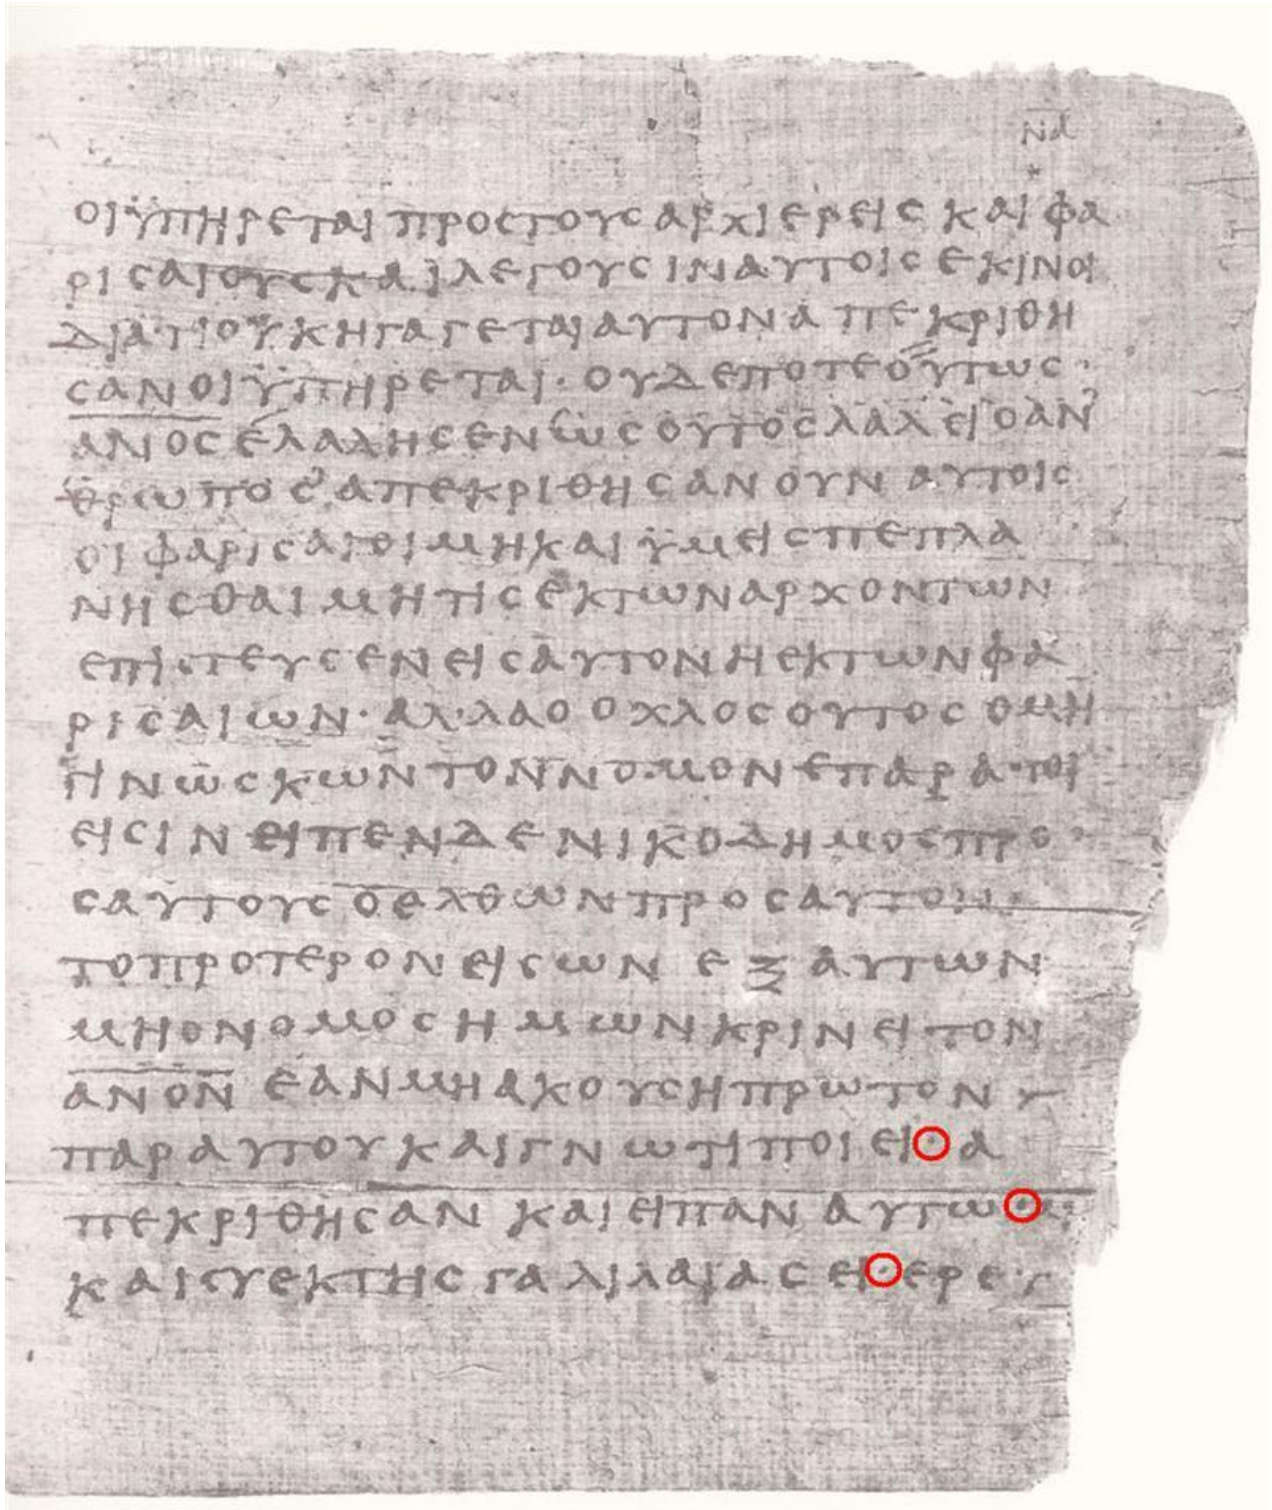 ΝΔ
ΟΙ ΫΠΗΡΕΤΑΙ ΠΡΟΣ ΤΟΥΣ ΑΡΧΙΕΡΕΙΣ ΚΑΙ ΦΑ
ΡΙΣΑΙΟΥΣ ΚΑΙ ΛΕΓΟΥΣΙΝ ΑΥΤΟΙΣ ΕΚΙΝΟΙ
ΔΙΑ ΤΙ ΟΥΚ ΗΓΑΓΕΤΑΙ ΑΥΤΟΝ ΑΠΕΚΡΙΘΗ
ΣΑΝ ΟΙ ΫΠΗΡΕΤΑΙ· ΟΥΔΕΠΟΤΕ ΟΥΤΩΣ
ΑΝΙΟΣ ΕΛΑΛΗΣΕΝ ΩΣ ΟΥΤΟΣ ΛΑΛΕΙ Ο ΑΝ
ΘΡΩΠΟΣ ΑΠΕΚΡΙΘΗΣΑΝ ΟΥΝ ΑΥΤΟΙΣ
ΟΙ ΦΑΡΙΣΑΙΟΙ ΜΗ ΚΑΙ ΫΜΕΙΣ ΠΕΠΛΑ
ΝΗΣΘΑΙ ΜΗ ΤΙΣ ΕΚ ΤΩΝ ΑΡΧΟΝΤΩΝ
ΕΠΙΣΤΕΥΣΕΝ ΕΙΣ ΑΥΤΟΝ Η ΕΚ ΤΩΝ ΦΑ
ΡΙΣΑΙΩΝ· ΑΛ·ΛΑ Ο Ο ΧΛΟΣ ΟΥΤΟΣ Ο ΜΗ
ΓΙΝΩΣΚΩΝ ΤΟΝ ΝΟΜΟΝ ΕΠΑΡΑΤΟΙ
ΕΙΣΙΝ ΕΙΠΕΝ ΔΕ ΝΙΚΟΔΗΜΟΣ ΠΡΟ
Σ ΑΥΤΟΥΣ Ο ΕΛΘΩΝ ΠΡΟΣ ΑΥΤΟΝ
ΤΟ ΠΡΟΤΕΡΟΝ ΕΙΣ ΩΝ ΕΞ ΑΥΤΩΝ
ΜΗ Ο ΝΟΜΟΣ ΗΜΩΝ ΚΡΙΝΕΙ ΤΟΝ
ΑΝΟΝ ΕΑΝ ΜΗ ΑΚΟΥΣΗ ΠΡΩΤΟΝ
ΠΑΡ ΑΥΤΟΥ ΚΑΙ ΓΝΩ ΤΙ ΠΟΙΕΙ· Α
ΠΕΚΡΙΘΗΣΑΝ ΚΑΙ ΕΙΠΑΝ ΑΥΤΩ·
ΚΑΙ ΣΥ ΕΚ ΤΗΣ ΓΑΛΙΛΑΙΑΣ ΕΙ· ΕΡΕ